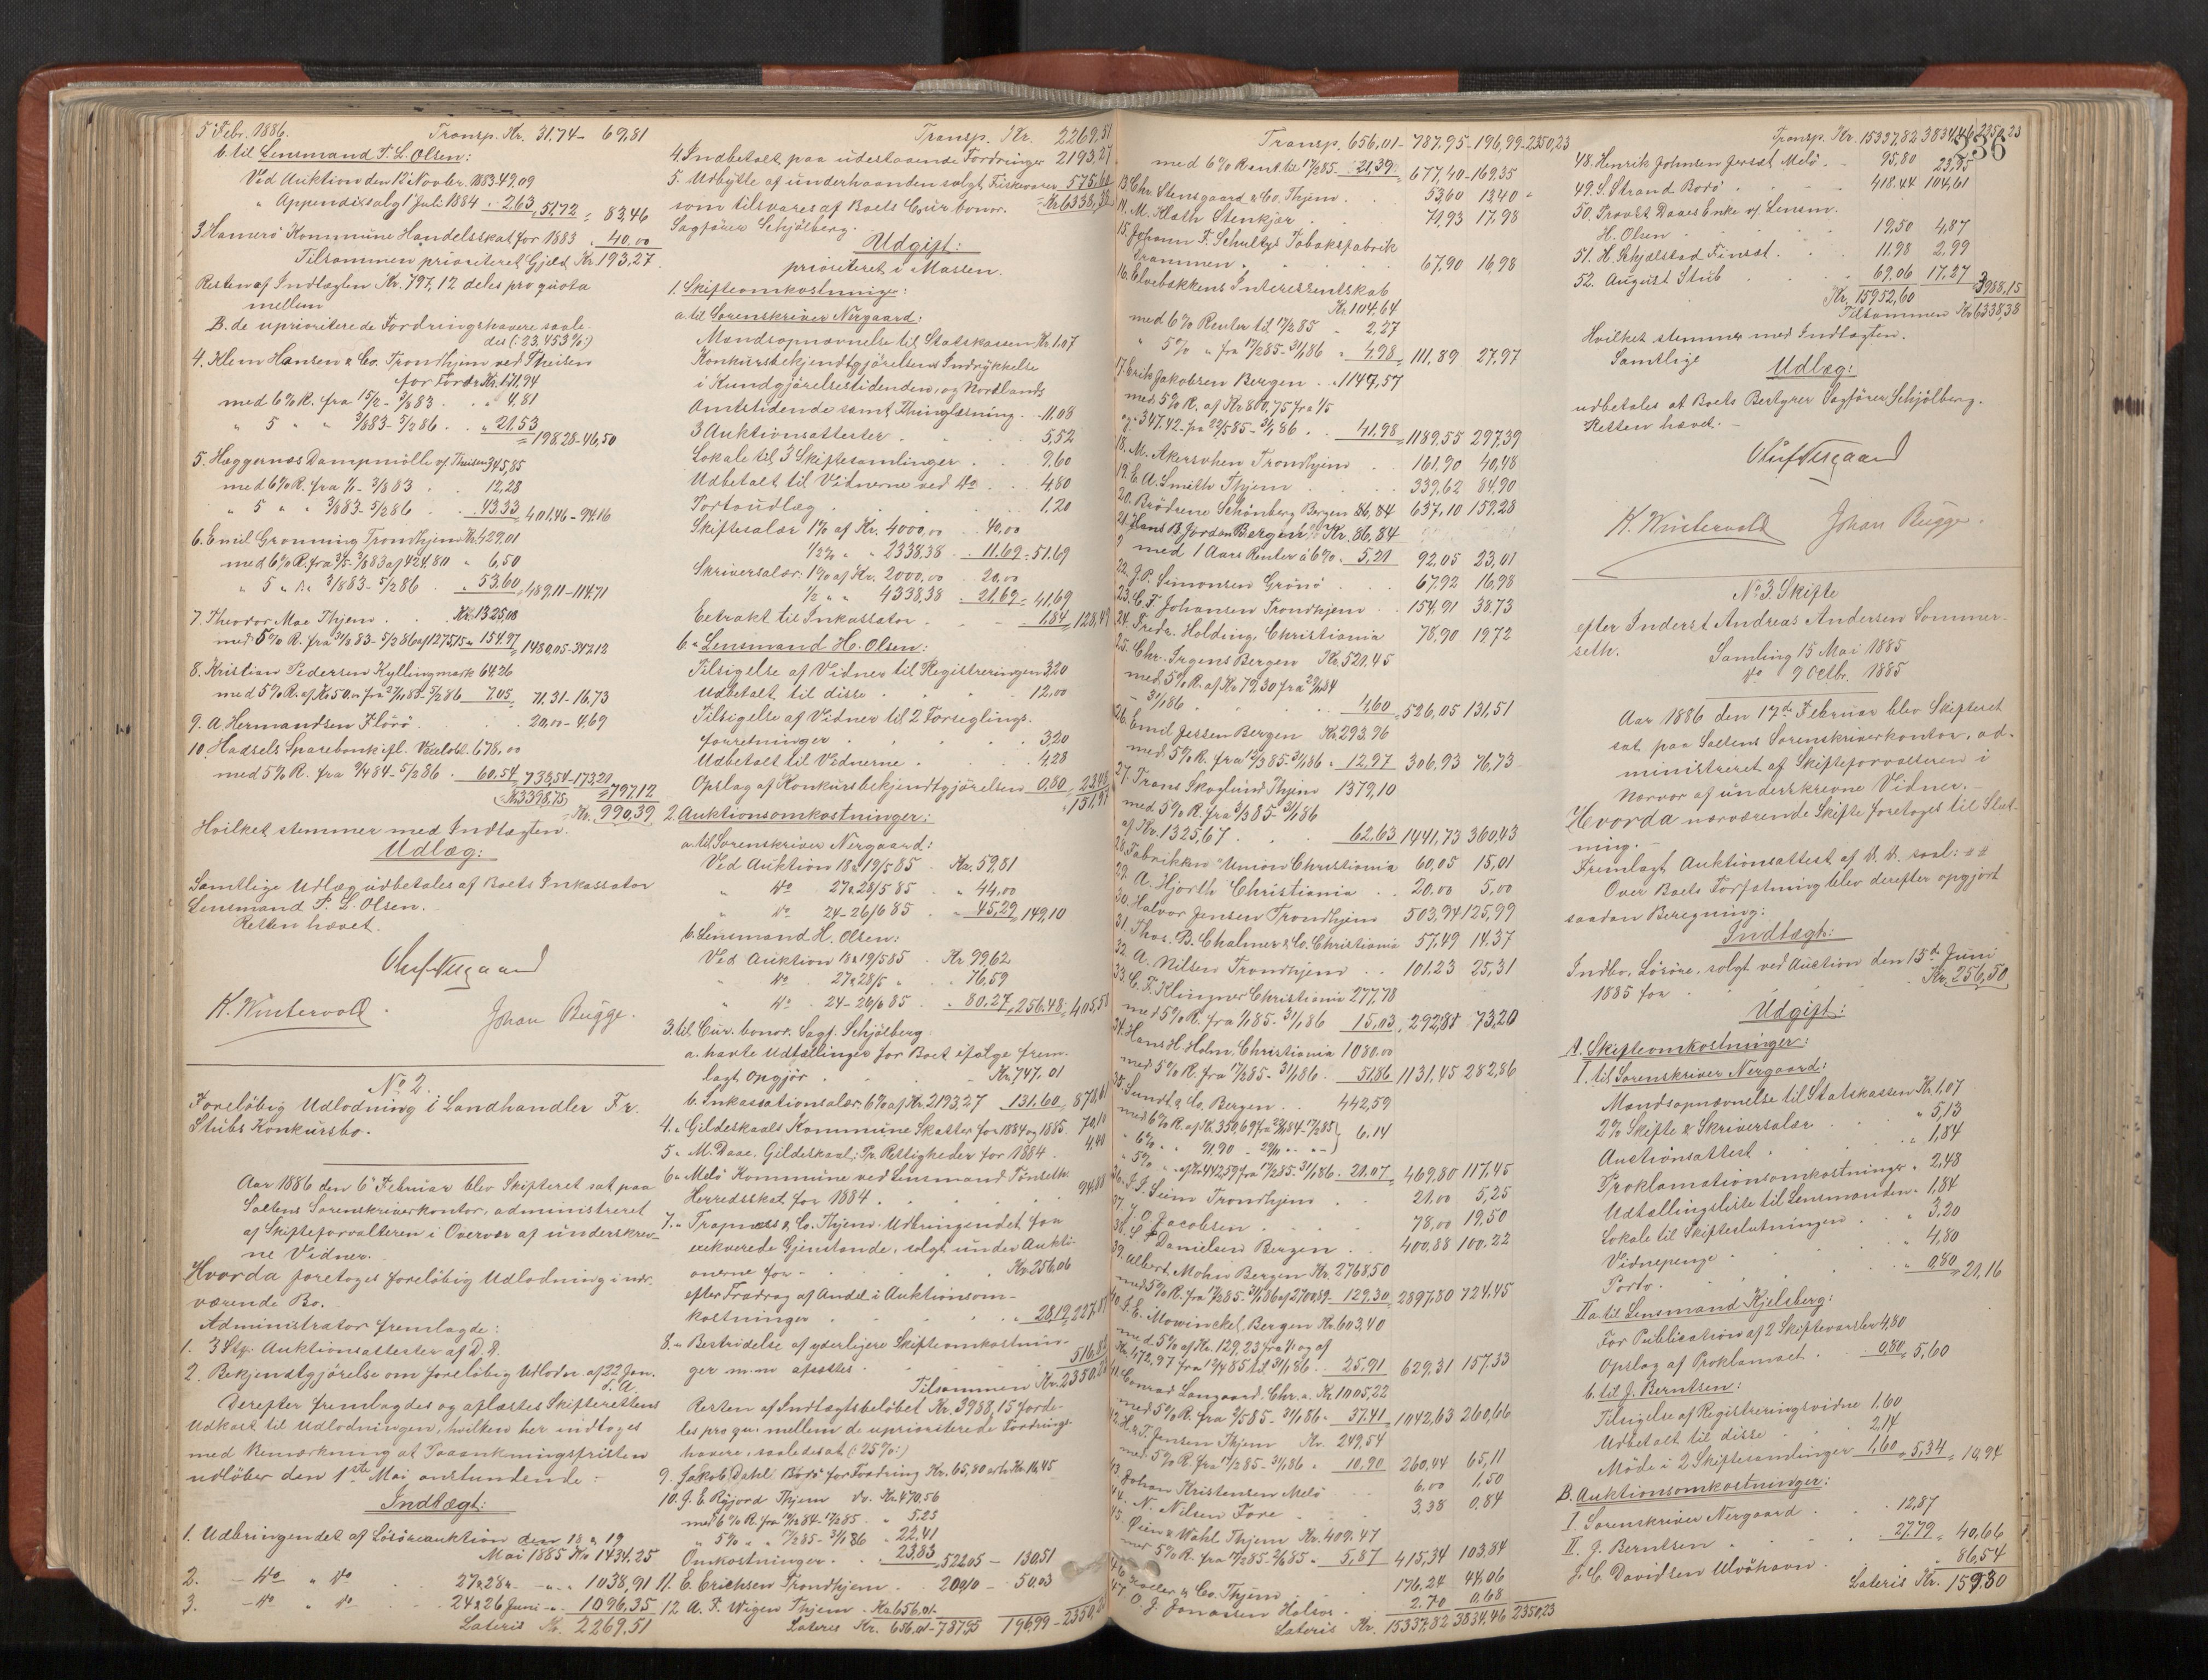 5 Febr. 1886. Transp. Kr. 31.74 - 69,81
b. til Lensmand P. L. Olsen:
Ved Auktion den 12 Novbr. 1883 49,09
" Appendixsalg 1 Juli 1884 " 2,63, 51,72 = 83,46
3. Hamerö Kommune Handelsskat for 1883 " 40,00
Tilsammen prioriteret Gjæld Kr. 193,27
Resten af Indtægten Kr. 797,12 deles pro quota
mellem
B. de uprioriterede Fordringshavere saale-
des (: 23,453 % :)
4. Klem Hansen & Co. Trondhjem ved Theisen
for Fordr. Kr. 171,94
med 6% R. fra 15/2 - 3/8 83 . . " 4,81
" 5 " " 3/8 83 - 5/2 86 . . " 21.53 = 198,28 - 46,50
5. Hæggernæs Dampmölle v/ Theisen 345,85
med 6% R. fra 1/1 - 3/8 83 . . 12,28
" 5 " " 3/8 83 - 5/2 86 . . 43.33 = 401,46 - 94.16
6. Emil Gronning Trondhjem Kr. 429,01
med 6% R. fra 3/5 - 3/8 83 af 424.80 " 6,50
" 5 " " 3/8 83 - 5/2 86 . " 53.60 = 489,11 - 114.71
7. Theodor Moe Thjem . . Kr. 1325,08
med 5% R. fra 31/8 83 - 5/2 86 af 1275,15 " 154.97 = 1480,05 - 347.12
8. Kristian Pedersen Kyllingmark 64,26
med 5% R. af Kr. 50,00 fra 27/1 83 - 5/2 86 7.05 = 71.31 - 16,73
9. A. Hermandsen Florö . . . 20,00 - 4.69
10. Hadsels Sparebank ifl. Vexelobl. 678,00
med 5% R. fra 9/4 84 - 5/2 86 . 60,54 = 738,54 - 173,20 = 797.12
(Kr. 3398,75) = Kr. 990,39
Hvilket stemmer med Indtægten.
Udlæg:
Samtlige Udlæg udbetales af Boets Inkassator
Lensmand P. L. Olsen.
Retten hævet.
Oluf Nergaard
K. Wintervold . Johan Bugge.
No 2.
Foreløbig Udlodning i Landhandler Fr.
Stubs Konkursbo.
Aar 1886 den 6 Februar blev Skifteret sat paa
Saltens Sorenskriverkontor, administreret
af Skifteforvalteren i Overvær af underskrev-
ne Vidner.
Hvorda foretoges foreløbig Udlodning i nær-
værende Bo.
Administrator fremlagde:
1. 3 Stkr. Auktionsattester af D. D.
2. Bekjendtgjörelse om foreløbig Udlodn. af 22 Jan.
d. A.
Derefter fremlagdes og oplæstes Skifterettens
Udkast til Udlodningen, hvilken her indtages
med Bemærkning at Paaankningsfristen
udlöber den 1ste Mai anstundende :
Indtægt:
1. Udbringendet af Lösöreauktion den 18 & 19
Mai 1885 Kr. 1434.25
2. - do " do 27 & 28 " - " 1038,91
3. - do " do 24 & 26 Juni " 1096,35
Lateris Kr. 2269,51
Transp. Kr. 2269,51
4. Indbetalt paa udestaaende Fordringer 2193,27
5. Udbytte af underhaanden solgt Fiskevarer 575,60
som tilsvares af Boets Cur. bonor. = Kr. 6338,38
Sagförer Schjölberg.
Udgift:
prioriteret i Massen.
1. Skifteomkostninger:
a. til Sorenskriver Nergaard:
Mandsopnævnelse til Statskassen Kr. 1.07
Konkursbekjendtgjörelsens Indrykkelse
i Kundgjörelsestidenden, og Nordlands
Amtstidende samt Thinglæsning . 11,08
3 Auktionsattester . . . 5,52
Lokale til 3 Skiftesamlinger . . 9,60
Udbetalt til Vidnerne ved do . . . 4,80
Portoudlæg . . . 1,20
Skiftesalær 1% af Kr. 4000,00 . 40,00
1/2% " " 2338,38 . 11.69 = 51.69
Skriversalær: 1% af Kr. 2000,00 . 20,00
1/2 " " 4338,38 . 21.69 = 41.69
Extrakt til Inkassator . . . 1.84 = 128,49
b. " Lensmand H. Olsen:
Tilsigelse af Vidner til Registreringen 3.20
Udbetalt til disse . . . 12,00
Tilsigelse af Vidner til 2 Forseglings-
forretninger . . . 3,20
Udbetalt til Vidnerne . . . 4,28
Opslag af Konkursbekjendtgjörelsen 0,80 = 23,48 = 151,97
2. Auktionsomkostninger:
a. til Sorenskriver Nergaard:
Ved Auktion 18 & 19/5 85 . Kr. 59,81
" do 27 & 28/5 85 . " 44,00
" do 24 - 26/6 85 . " 45,29 = 149,10
b. Lensmand H. Olsen:
Ved Auktion 18 & 19/5 85 . Kr. 99,62
" do . 27 & 28/5 " . " 76,59
" do . 24 - 26/6 85 . " 80.27 = 256,48 = 405,58
3. til Cur. bonor. Sagf. Schjölberg:
a. havte Udtællinger for Boet ifölge frem-
lagt Opgjör . . . Kr. 747,01
b. Inkassationsalær. 6% af Kr. 2193,27 131.60 = 878,61
4. " Gildeskaals Kommune Skatter for 1884 og 1885 . 70,10
5 " M. Daae, Gildeskaal, Pr. Rettigheder for 1884 .
6 " Melö Kommune ved Lensmand Tönseth
Herredsskat for 1884 . . . 94,88
7. " Trapness & Co. Thjem. Udbringendet for
exekverede Gjenstande, solgt under Aukti-
onerne for - . . . Kr. 256,06
efter Fradrag af Andel i Auktionsom-
kostninger . . . 28,19 = 227,87
8. " Bestridelse af yderligere Skifteomkostnin-
ger m.m. afsættes . . .
Tilsammen Kr. 2350,23
Resten af Indtægtsbeløbet Kr. 3988,15 forde-
les pro qu. mellem de uprioriterede Fordrings-
havere, saaledes at (: 25% :)
9. Jakob Dahl Bodö for Fordring Kr. 65,80 erh. Kr. 16,45
10. J. E. Ryjord Thjem do. Kr. 470.56
med 6% R. fra 10/12 84 - 17/2 85 . " 5,25
" 5% " " 17/2 85 - 31/1 86 " 22,41
Omkostninger . . " 23,83 = 522,05 - 130,51
11. E. Erichsen Trondhjem . . 200,10 - 50,03
12. A. F. Wigen Thjem . Kr. 656,01
Lateris Kr. 656,01 - 787,95 196,99 - 2350,23
Transp. 656,01 - 787,95 - 196,99 - 2350,23
med 6% Rent til 17/2 85 - 21,39 = 677,40 - 169,35
13. Chr. Stensgaard & Co. Thjem . 53,60 13,40
14. M. Klath Stenkjær . . 71,93 17,98
15. Johann F. Schultz's Tobaksfabrik
Drammen . . . 67,90 16,98
16. Elvebakkens Interessentskab
Kr. 104,64
med 6% Renter til 17/2 85 " 2,27
" 5% " fra 17/2 85 - 31/1 86 " 4,98 = 111,89 27,97
17. Erik Jakobsen Bergen . . " 1147,57
med 5% R. af Kr. 800,75 fra 1/5
og " 347.42 fra 22/5 85 - 31/1 86 . 41,98 = 1189,55 297,39
18. M. Akersvhen Trondhjem . . 161,90 40,48
19. E. A. Smith Thjem . . . 339,62 84,90
20. Brödrene Schönberg Bergen 637,10 159,28
21. Hans B. Jordan Bergen Kr. 86,84
med 1 Aars Renter à 6% " 5,21 92,05 23,01
22. J. P. Simonsen Grönö . . 67,92 16,98
23. C. F. Johansen Trondhjem . . 154,91 38,73
24. Fredr. Holding, Christiania 78,90 19,72
25. Chr. Irgens Bergen Kr. 521,45
med 5% R. af Kr. 79,30 fra
- 31/1 86 . . . 4,60 = 526,05 131,51
26. Emil Jessen Bergen Kr. 293.96
med 5% R. fra 17/3 85 - 31/1 86 " 12,97 306,93 76,73
27. Frans Skoglund Thjem 1379,10
med 5% R. fra 3/3 85 - 31/1 86
af Kr. 1325,67 . . 62,63 1441,73 360,43
28. Fabrikken "Union" Christiania 60,05 15,01
29. A. Hjorth Christiania . . 20.00 5,00
30. Halvor Jensen Trondhjem 503,94 125,99
31. Thos. B. Chalmer & Co. Christiania 57,49 14.37
32. A. Nilsen Trondhjem . . 101.23 25,31
33. C. F. Klingner Christiania 277,78
med 5% R. fra 1/1 85 - 31/1 86 15,03 292,81 73,20
34. Hans H. Holm, Christiania 1080.00
med 5% R. fra 17/2 85 - 31/1 86 . 51,86 1131,45 282,86
35. Sundt & Co. Bergen . . 442,59
med 6% R. af Kr. 350,69 fra 17/2 85 } 6.14
" 6% " 91,90 - 29/11 "
" 5% " af Kr. 442,59 fra 17/2 85 - 31/1 86 . 21.07 = 469,80 117,45
36. J. J. Sein Trondhjem . . 21,00 5,25
37. J. O. Jacobsen . . . 78,00 19,50
38. S. P. Danielsen Bergen . . 400,88 100,22
39. Albert Mohn Bergen Kr. 2768,50
med 5% R. fra 17/2 85 - 31/1 86 af 2700,89 . 129.30 = 2897,80 724.45
40. F. E. Mowinckel, Bergen Kr. 603,40
med 5% af Kr. 129,23 fra 1/1 og af
Kr. 472,97 fra 12/4 85 til 31/1 86 . 25,91 629,31 157,33
41. Conrad Langaard, Chr.a. Kr. 1005,22
med 5% R. fra 3/5 85 - 31/1 86 " 37.41 = 1042,63 260,66
42. H. & T. Jensen Thjem Kr. 249,54
med 5% R. fra 17/2 85 - 31/1 86 " 10,90 260,44 65,11
43. Johan Kristensen Melö . . 6,00 1,50
44. N. Nilsen Fore . . . 3,38 0,84
45. Öien & Wahl Thjem Kr. 409.47
med 5% R. fra 17/2 85 - " 5,87 415,34 103,84
46. Koeller & Co. Thjem . . 176.24 44,06
47. O. J. Jonassen Holsvo . . 2.70 0.68
Lateris Kr. 15337,82 3834,46 2350,23
336
Transp. Kr. 15337,82 3834,46 2350,23
48. Henrik Johnsen Jersæt Melö . . 95,80 23,95
49. S. Strand Bodö . . . 418.44 104,61
50. Provst Daaes Enke v/ Lensm.
H. Olsen . . . 19,50 4,87
51. H. Schjelstad Finsæt . . 11.98 2,99
52. August Stub . . . 69,06 17,27 = 3988,15
Kr. 15952,60
Tilsammen Kr. 6338,38
Hvilket stemmer med Indtægten.
Samtlige
Udlæg:
udbetales af Boets Bestyrer Sagförer Schjölberg.
Retten hævet. -
Oluf Nergaard
K. Wintervold Johan Bugge.
No 3. Skifte
efter Inderst Andreas Andersen Sommer-
seth.
Samling 15 Mai 1885
do 9 Octbr. 1885
Aar 1886 den 17de Februar blev Skifteret
sat paa Saltens Sorenskriverkontor, ad-
ministreret af Skifteforvalteren i
Nærvær af underskrevne Vidner. -
Hvorda nærværende Skifte foretoges til Slut-
ning. -
Fremlagt Auktionsattest af D. D. saal:
Over Boets Forfatning blev derefter opgjort
saadan Beregning:
Indtægt:
Indbo, Lösöre, solgt ved Auction den 15de Juni
1885 for . . . Kr. 256,50
Udgift:
A. Skifteomkostninger:
I. til Sorenskriver Nergaard:
Mandsopnævnelse til Statskassen Kr. 1,07
2% Skifte & Skriversalær . . " 5,13
Auctionsattest . . . " 1,84
Proklamationsomkostninger " 2,48
Udtællingsliste til Lensmanden " 1,84
Lokale til Skifteslutningen . . " 3,20
Vidnepenge . . . " 4,80
Porto . . . " 0,80 = 21,16
II a. til Lensmand Kjelsberg:
For Publication af 2 Skiftevarsler 4,80
Opslag af Proklamaet . . 0,80 = 5,60
b. til J. Berntsen:
Tilsigelse af Registreringsvidne 1,60
Udbetalt til disse . . 2,14
Möde i 2 Skiftesamlinger 1,60 = 5,34 = 10,94
B. Auktionsomkostninger:
I. Sorenskriver Nergaard . . 12,87
II. J. Berntsen . . . 27.79 = 40,66
J. C. Davidsen Ulvöhavn . . 86,54
Lateris Kr. 159.30